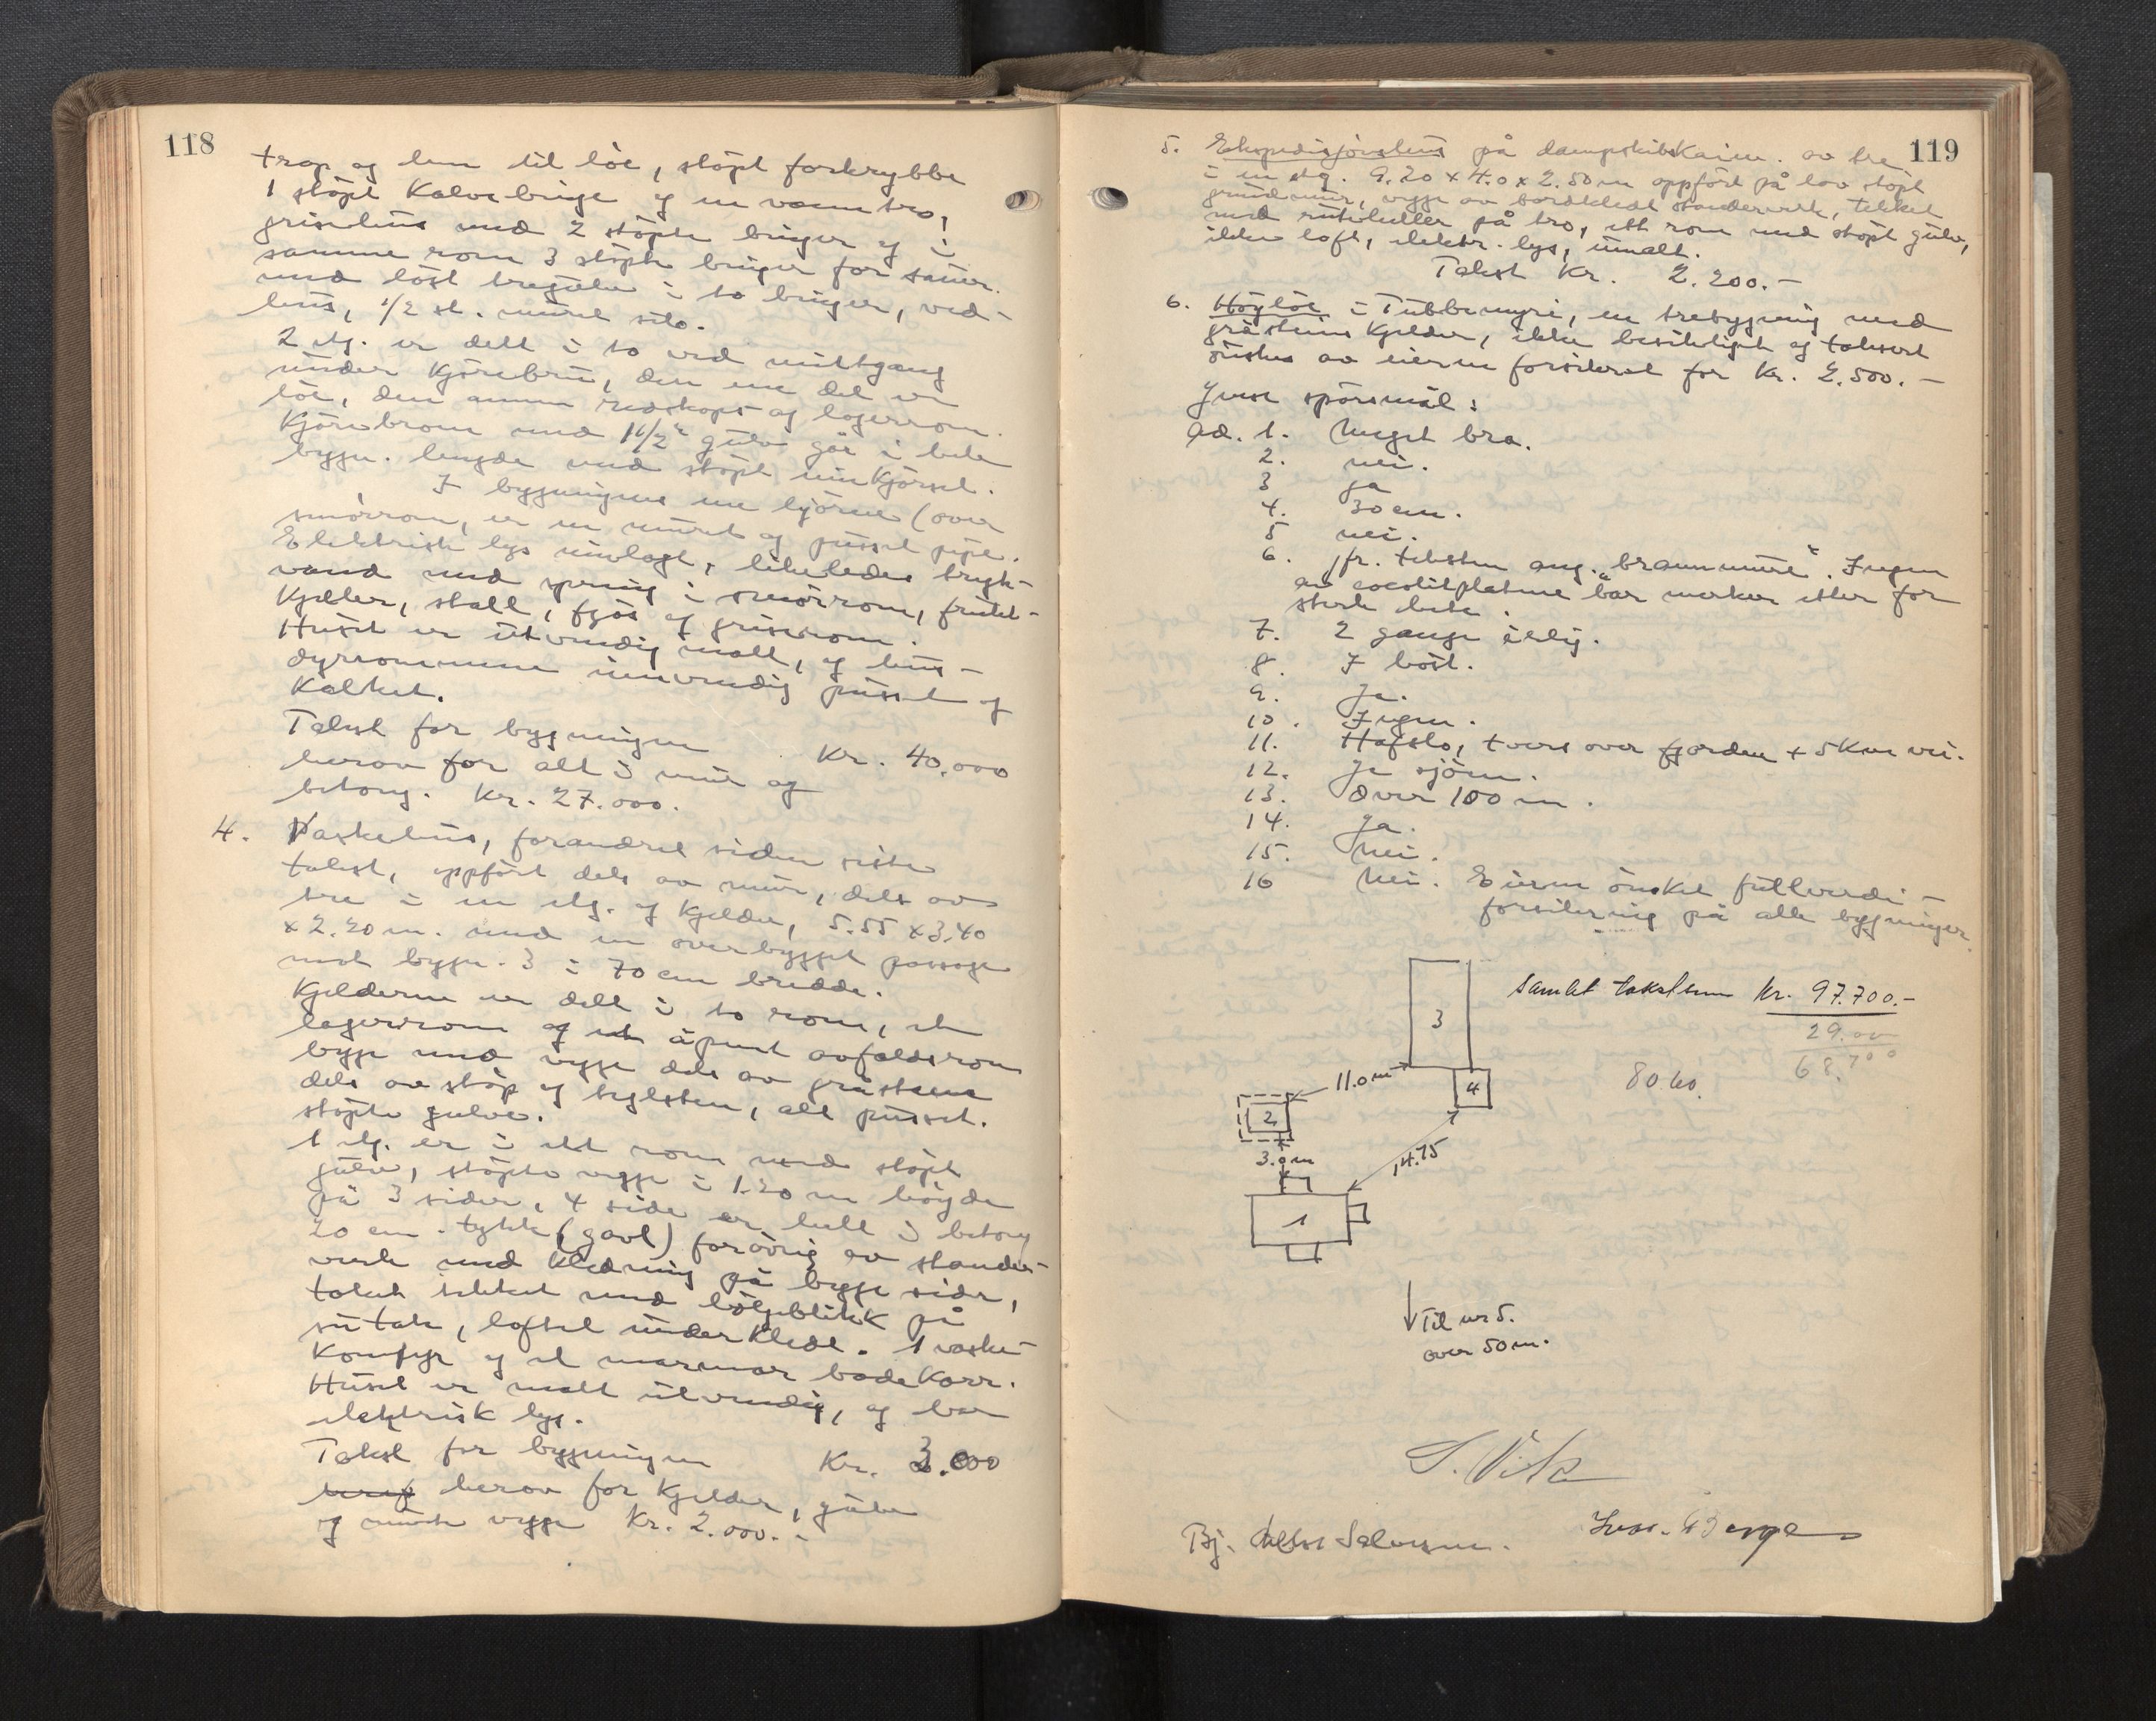 118
trap og lem til löe, stöpt forkrybbe
1 stöpt Kalvebinge og en vanntro,
grisehus med 2 stöpte binger og i
samme rom 3 stöpte binger for sauer.
med löst tregulv i to binger, ved-
hus, 1/2 st. muret silo.
2 etg. er delt i to ved midtgang
under Kjörebru, den ene del er
löe, den annen redskaps og lagerrom.
Kjörebroen med 1 1/2" gulv går i hele
bygn. lengde med stöpt innkjörsel.
I bygningens ene hjörne (over
smörrom, er en muret og pusset pipe.
Elektrisk lys innlagt, likeledes trykk-
vand med spring i smörrom, frukt-
Kjeller, stall, fjös og griserom.
Huset er utvendig malt, og hus-
dyrrommene innvendig pusset og
Kalket.
Takst for bygningen Kr. 40.000
herav for alt i mur og
betong. Kr. 27.000.
4. Vaskehus, forandret siden siste
takst, oppfört dels av mur, dels av
tre i en etg. og Kjelder, 5.55 x 3.40
x 2.20 m. med en overbygget passage
mot bygn. 3 i 70 cm bredde.
Kjelderen er delt i to rom, et
lagerrom og et åpent avfaldsrom
begge med vegge dels av gråsten
dels av stöp og teglsten, alt pusset.
stöpte gulve.
1 etg. er i ett rom med stöpt
gulv, stöpte vegge i 1.20 m höyde
på 3 sider, 4 side er helt i betong
20 cm. tykk (gavl) forövrig av stender-
verk med Kledning på begge sider,
taket tekket med bölgeblikk på
sutak, loftet underkledt. 1 vaske-
Komfyr og et marmor badekarr.
Huset er malt utvendig, og har
elektrisk lys.
Takst for bygningen Kr. 3.000
herav for Kjelder, gulv
og murte vegge Kr. 2.000.-
119
5. Ekspedisjonshus på dampskibskaien. av tre
i en etg. 9.20 x 4.0 x 2.50 m oppfört på lav stöpt
grunnmur, vegge av bordkledt stenderverk, tekket
med ruteheller på tro, ett rom med stöpt gulv,
ikke loft, elektr. lys, umalt.
Takst Kr. 2.200.-
6. Höylöe i Tubbemyri, en trebygning med
gråsteins Kjelder, ikke besiktiget og taksert
önskes av eieren forsikret for Kr. 2.500.-
Jvnst spörsmål:
ad. 1. Meget bra.
2. nei.
3 ja
4. 30 cm.
5 nei.
6. jfr. teksten ang. "brannmure". Ingen
av eocolitplatene bär merker etter for
sterk hete.
7. 2 gange årlig.
8. I höst.
9. Ja.
10. Ingen.
11. Hafslo, tvers over fjorden + 5 Km vei.
12. Ja sjöen.
13. Over 100 m.
14. Ja.
15. Nei.
16 Nei. Eieren önsket fullverdi-
forsikring på alle bygninger.
Samlet takstsum Kr. 97.700.-
29.00
68.700
80 60.
3
4
11.0 m
2
3.0 m
14.75
1
Til nr 5.
over 50 m.
S. Vik
Bj. Salvesen. Ivar. Berge